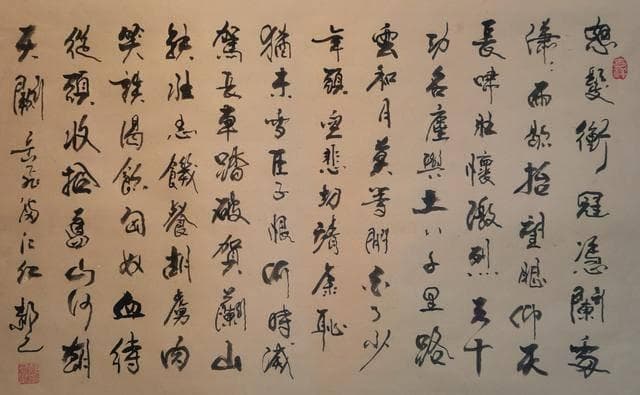 怒髮衝冠憑闌處
瀟々雨歇抬望眼仰天
長嘯壯懷激烈三十
功名塵與土八千里路
雲和月莫等閒白了少
年頭空悲切靖康恥
猶未雪臣子恨何時滅
駕長車踏破賀蘭山
缺壯志饑餐胡虜肉
笑談渴飲匈奴血待
從頭收拾舊山河朝
天闕岳飛滿江紅